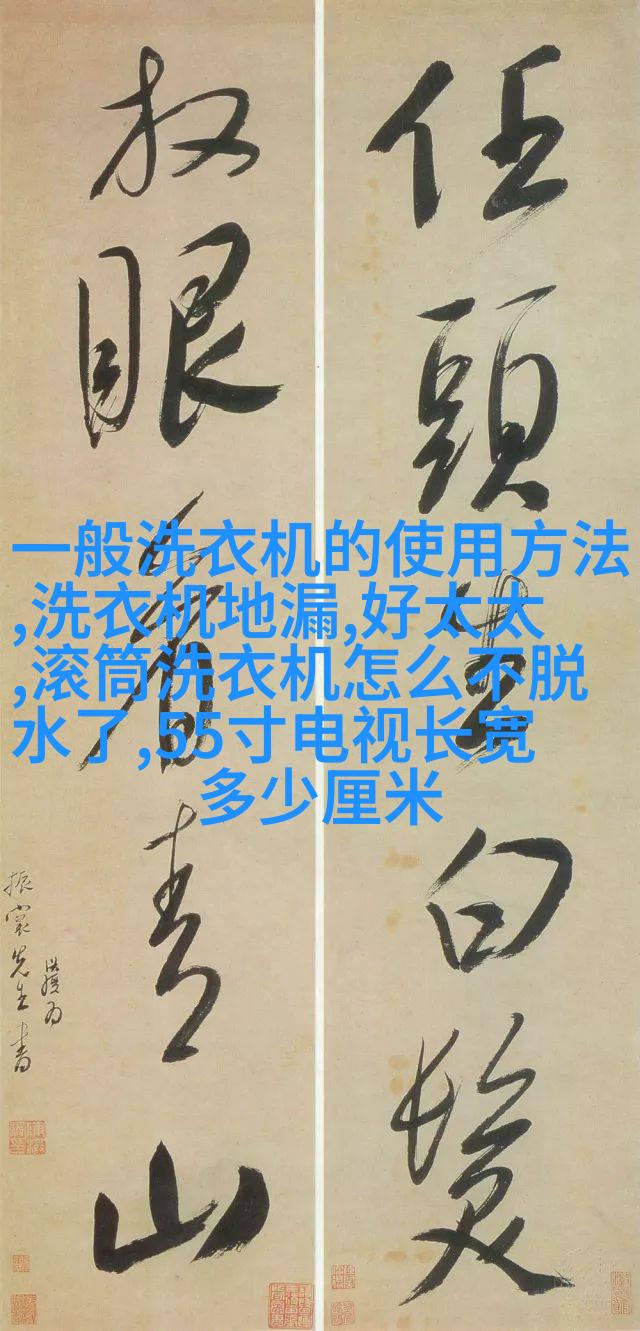 任頭生白髮
放眼看青山
一般洗衣机的使用方法
,洗衣机地漏,好太太
,滚筒洗衣机怎么不脱
水了,55寸电视长宽
多少厘米
先生書